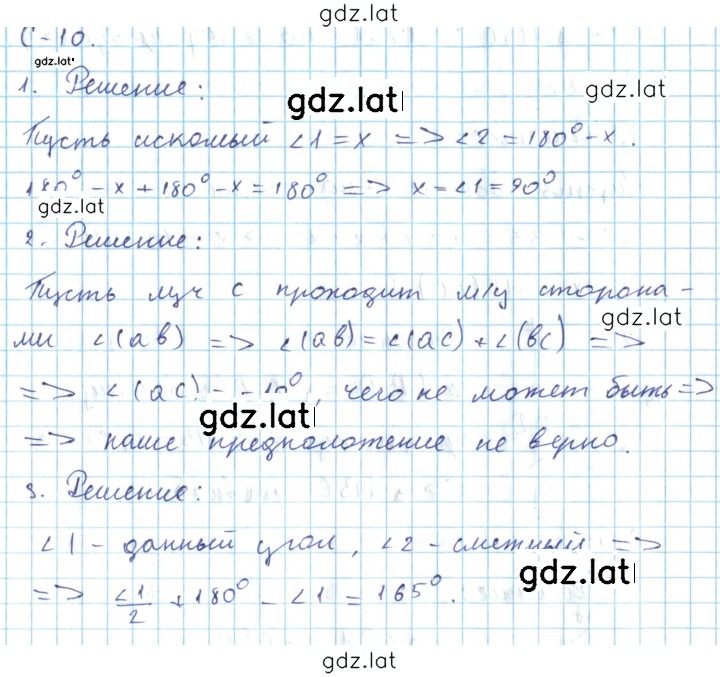 gdz.lat
С-10.
gdz.lat
1. Решение:
gdz.lat
gdz.lat
Пусть искомый ∠1 = x => ∠2 = 180° - x.
180° - x + 180° - x = 180° => x = ∠1 = 90°
gdz.lat
2. Решение:
Пусть луч c проходит м/у сторона-
gdz.lat
ми ∠(ab) => ∠(ab) = ∠(ac) + ∠(bc) =>
=> ∠(ac) = -10°, чего не может быть =>
gdz.lat
=> наше предположение не верно.
3. Решение:
∠1 - данный угол, ∠2 - смежный =>
gdz.lat
=> ∠1/2 + 180° - ∠1 = 165°.
gdz.lat